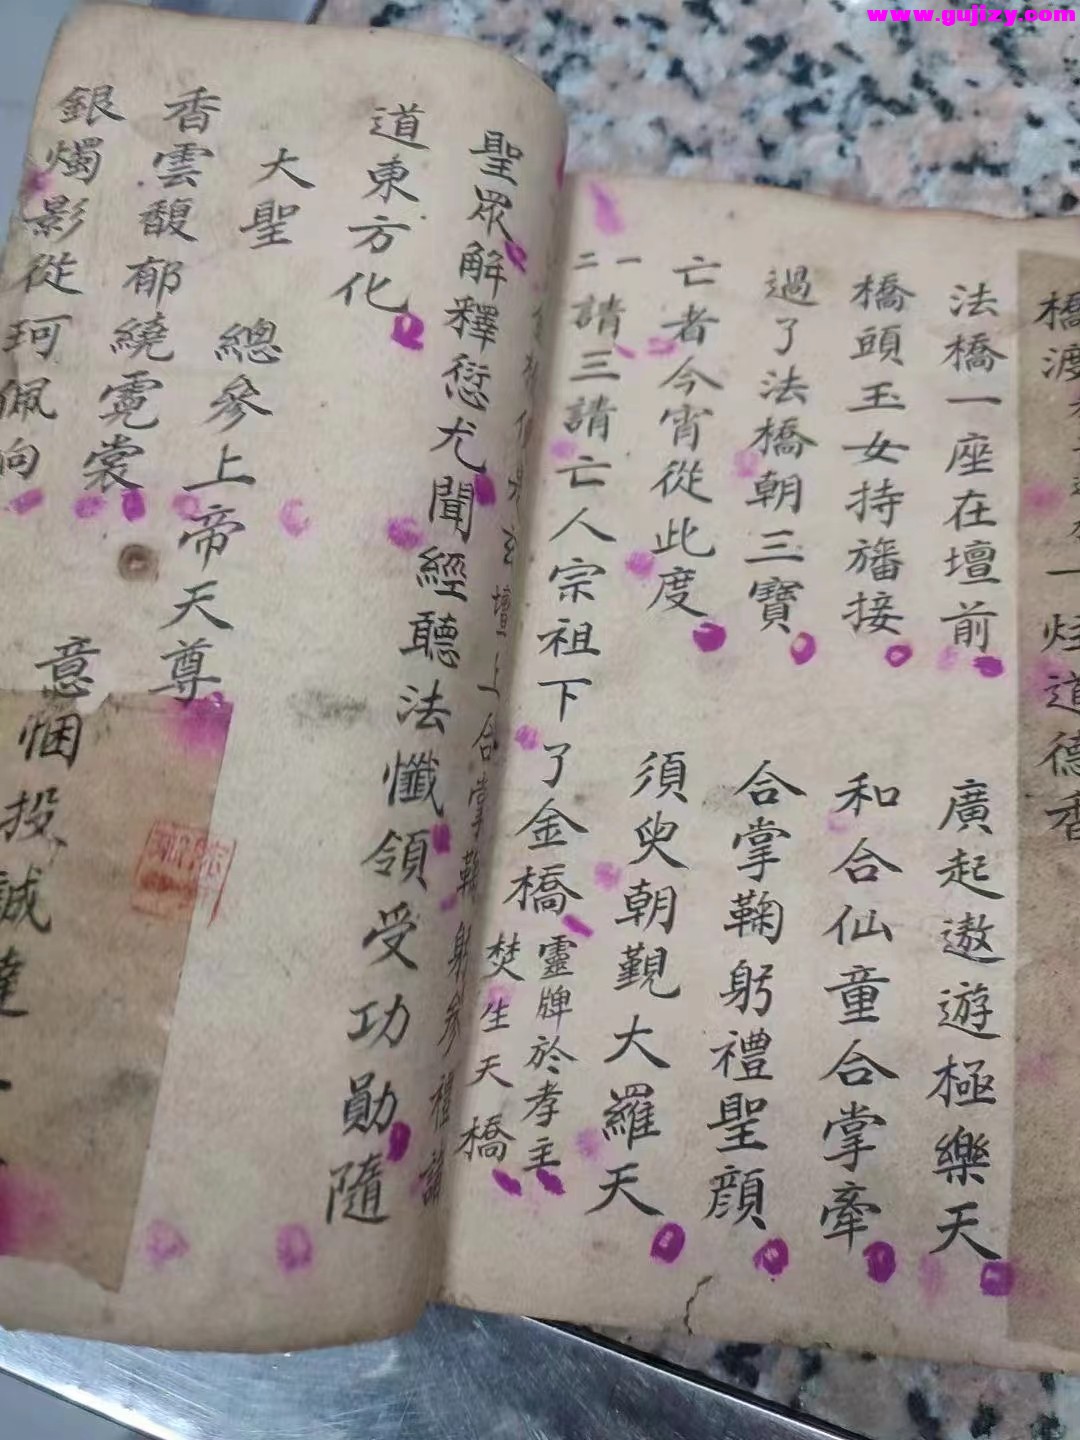 www.gujizy.com
橋渡
一炷道德香
法橋一座在壇前 廣起遨遊極樂天
橋頭玉女持旛接 和合仙童合掌牽
過了法橋朝三寶 合掌鞠躬禮聖顔
亡者今宵從此度 須臾朝覲大羅天
一
二請三請亡人宗祖下了金橋 靈牌於孝主
焚生天橋
壇上合掌鞠躬參禮請
聖眾解釋愆尤聞經聽法懺領受功勛隨
道東方化
大聖 總參上帝天尊
香雲馥郁繞霓裳 意悃投誠達
銀燭影從珂佩向